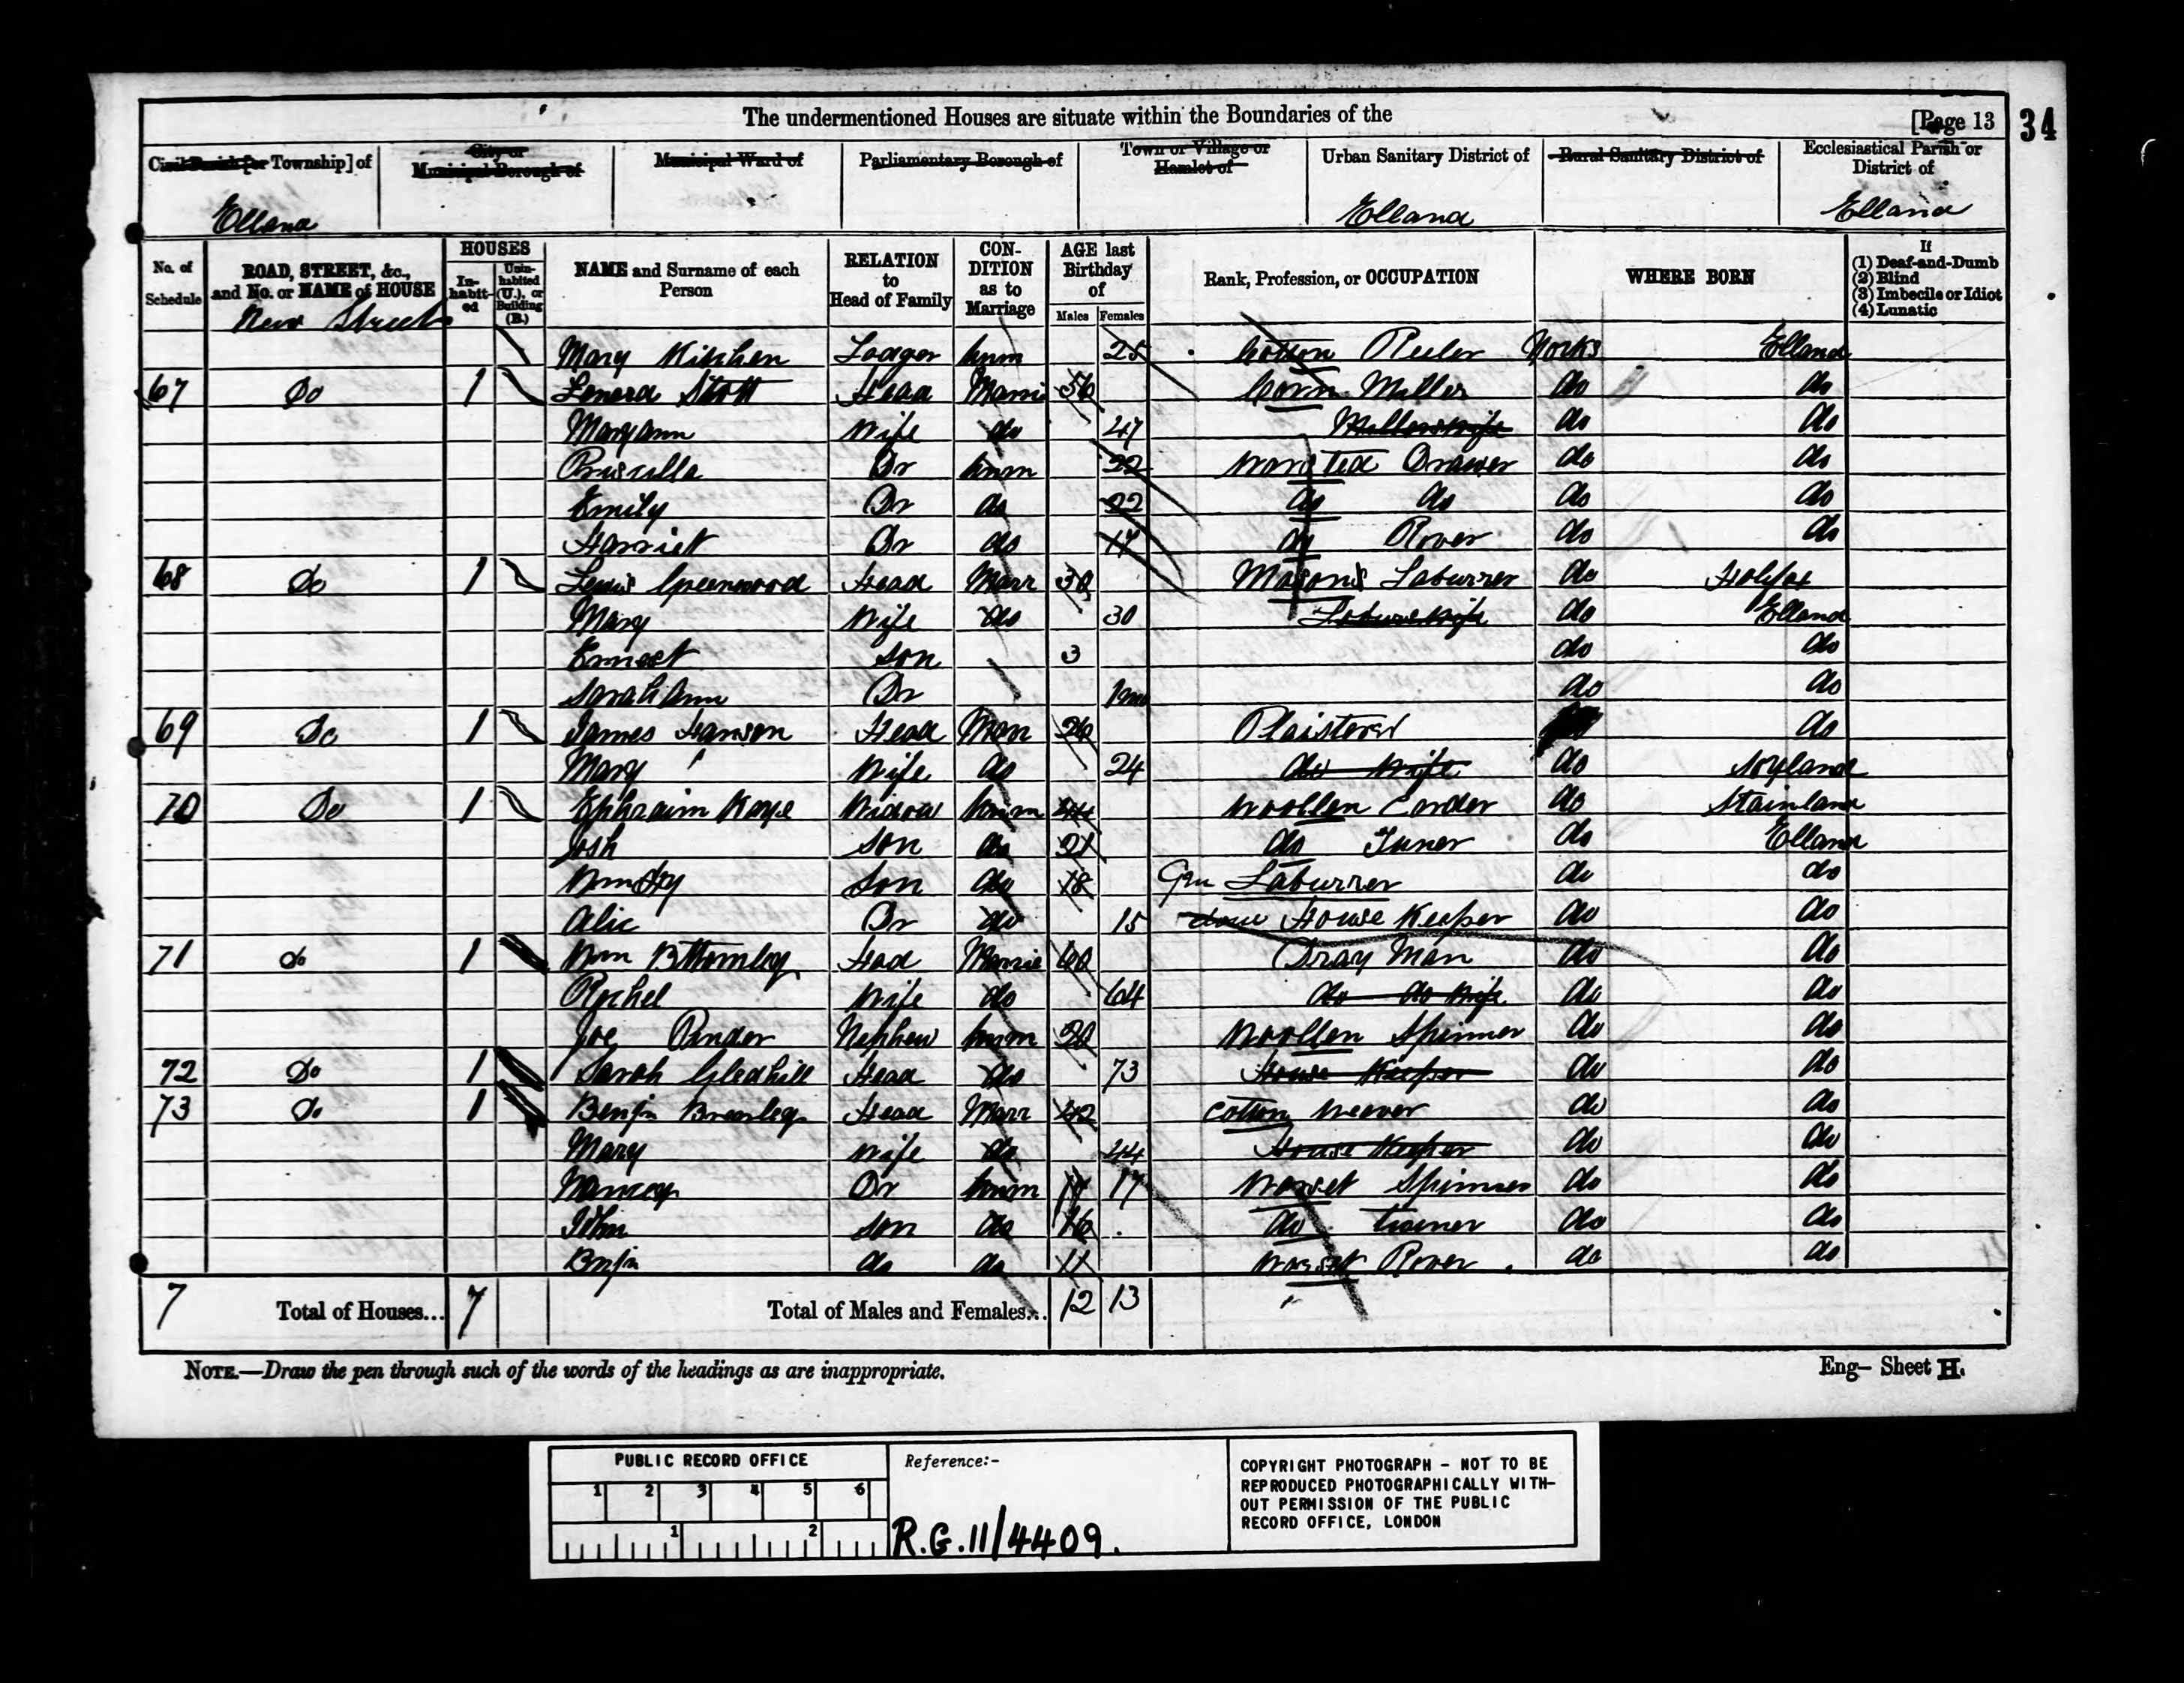 The undermentioned Houses are situate within the Boundaries of the
[Page 13
34
Civil Parish [or Township] of
City or Municipal Borough of
Municipal Ward of
Parliamentary Borough of
Town or Village or Hamlet of
Urban Sanitary District of
Rural Sanitary District of
Ecclesiastical Parish or District of
Elland
Elland
Elland
No. of Schedule
ROAD, STREET, &c., and No. or NAME of HOUSE
HOUSES
In-habit-ed
Unin-habited (U.), or Building (B.)
NAME and Surname of each Person
RELATION to Head of Family
CON-DITION as to Marriage
AGE last Birthday of
Males Females
Rank, Profession, or OCCUPATION
WHERE BORN
If
(1) Deaf-and-Dumb
(2) Blind
(3) Imbecile or Idiot
(4) Lunatic
New Street
Mary Kitchen Lodger Unm 25 Cotton Reeler Yorks Elland
67 Do 1 Lenord Stott Head Marri 56 Corn Miller do do
Maryann Wife do 47 Millers wife do do
Priscilla Dr Unm 22 Worsted Drawer do do
Emily Dr do 22 do do do do
Harriet Dr do 17 do Rover do do
68 Do 1 Lewis Greenwood Head Marr 30 Masons Laburrer do Halifax
Mary Wife do 30 do Elland
Ernest Son 3 do do
Sarah Ann Dr 1mo do do
69 Do 1 James Hanson Head Marr 26 Plaisterer do
Mary Wife do 24 do wife do Soyland
70 Do 1 Ephraim Kaye Widow Unm 44 Woollen Carder do Stainland
Josh Son do 21 do Tuner do Elland
Wm Hy Son do 18 Gen Laburrer do do
Alic Dr do 15 House Keeper do do
71 do 1 Wm Bttomley Head Marrie 60 Dray Man do do
Rachel Wife do 64 do do wife do do
Joe Pinder Nephew Unm 20 Woollen Spinner do do
72 Do 1 Sarah Gledhill Head do 73 House Keeper do do
73 Do 1 Benjn Brearley Head Marr 42 Cotton Weaver do do
Mary Wife do 44 House Keeper do do
Nancy Dr Unm 17 17 Worset Spinner do do
John Son do 16 do do do
Benjn do do 11 Worset Rover do do
7 Total of Houses... 7 Total of Males and Females... 12 13
NOTE.—Draw the pen through such of the words of the headings as are inappropriate.
Eng– Sheet H.
PUBLIC RECORD OFFICE
1 2 3 4 5 6
1 2
Reference:-
R.G.11/4409.
COPYRIGHT PHOTOGRAPH - NOT TO BE
REPRODUCED PHOTOGRAPHICALLY WITH-
OUT PERMISSION OF THE PUBLIC
RECORD OFFICE, LONDON